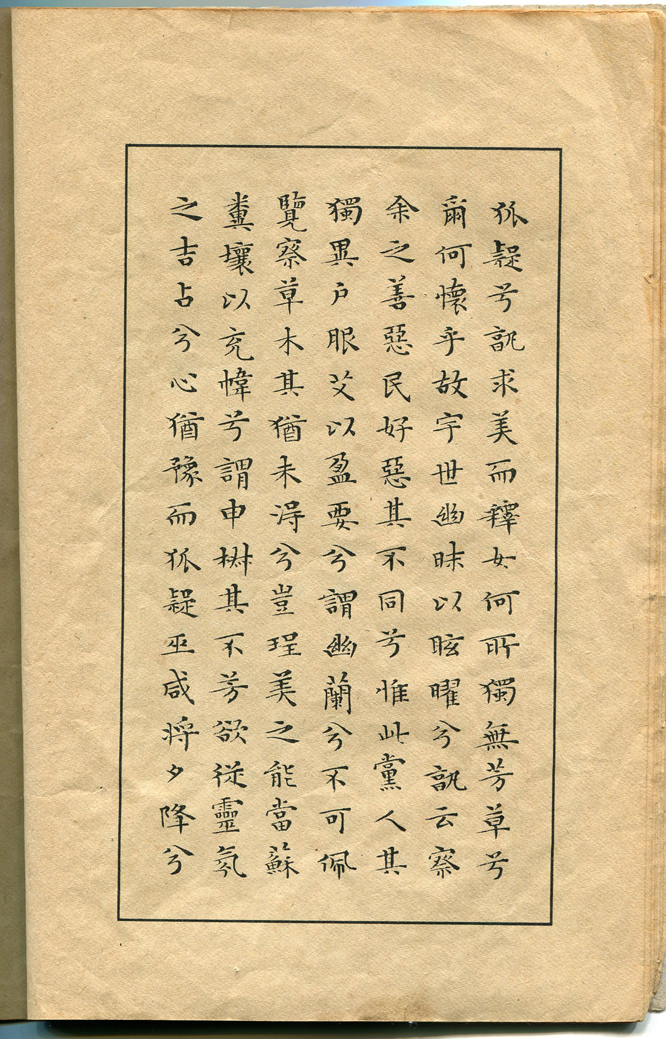 狐疑兮孰求美而釋女何所獨無芳草兮
爾何懷乎故宇世幽昧以眩曜兮孰云察
余之善惡民好惡其不同兮惟此黨人其
獨異戶服艾以盈要兮謂幽蘭兮不可佩
覽察草木其猶未得兮豈珵美之能當蘇
糞壤以充幃兮謂申椒其不芳欲從靈氛
之吉占兮心猶豫而狐疑巫咸將夕降兮